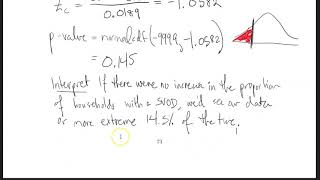 Zc = = -1.0582
0.0189
p-value = normalcdf(-9999, -1.0582)
= 0.145
Interpret If there were no increase in the proportion
of households with a SVOD, we'd see our data
or more extreme 14.5% of the time,